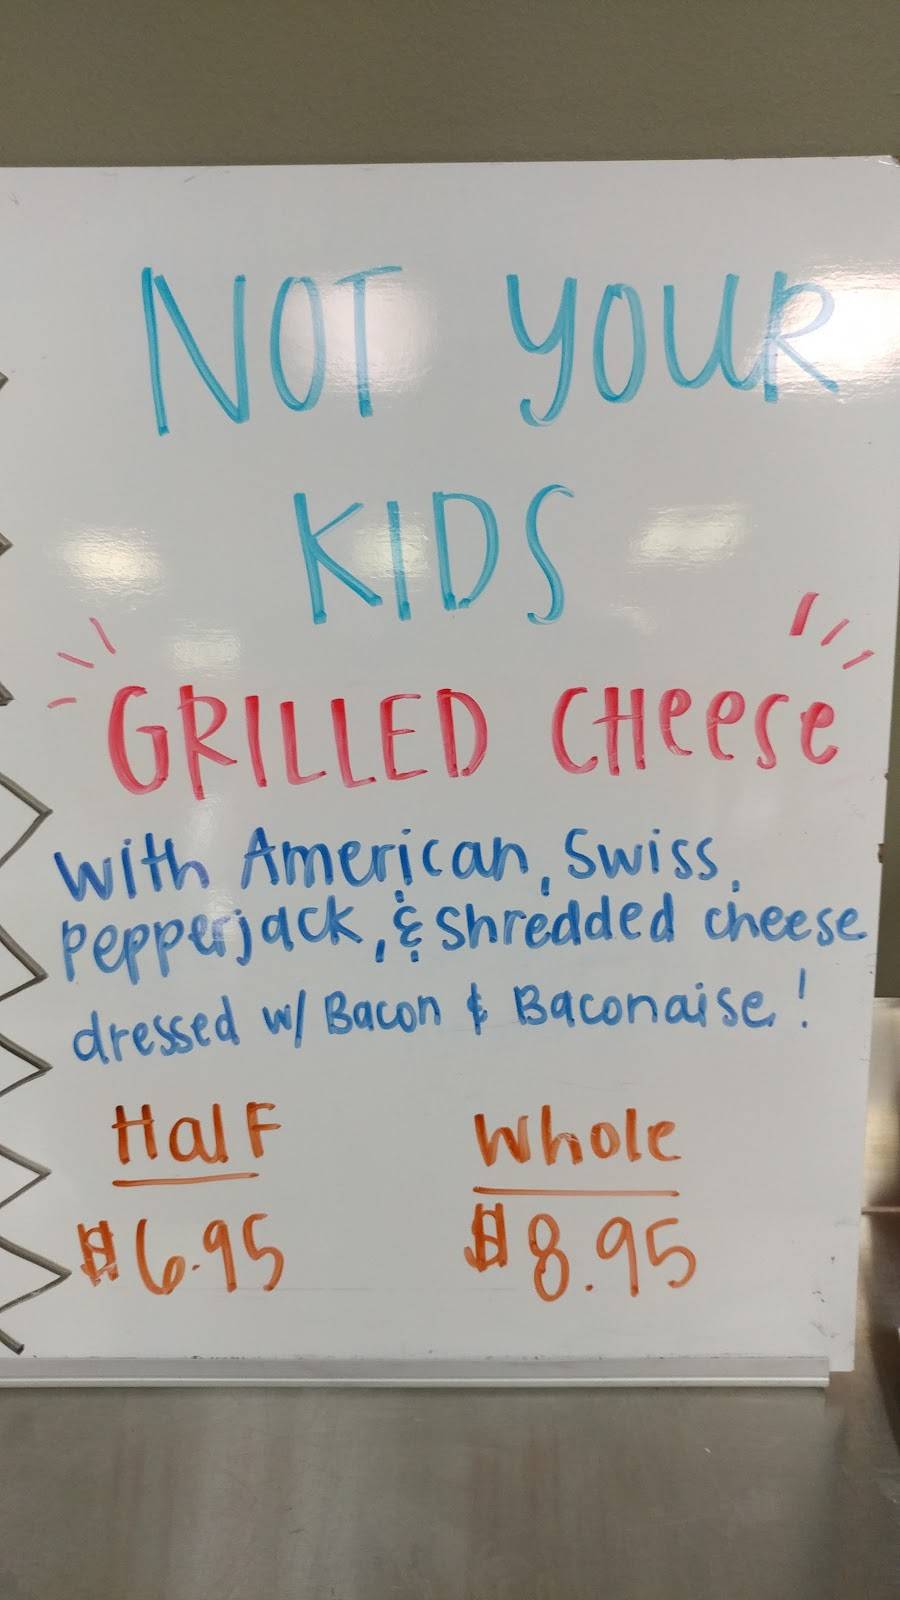 NOT YOUR
KIDS
GRILLED CHeese
With American, Swiss,
Pepperjack, & Shredded cheese
dressed w/ Bacon & Baconaise!
Half Whole
$6.95 $8.95